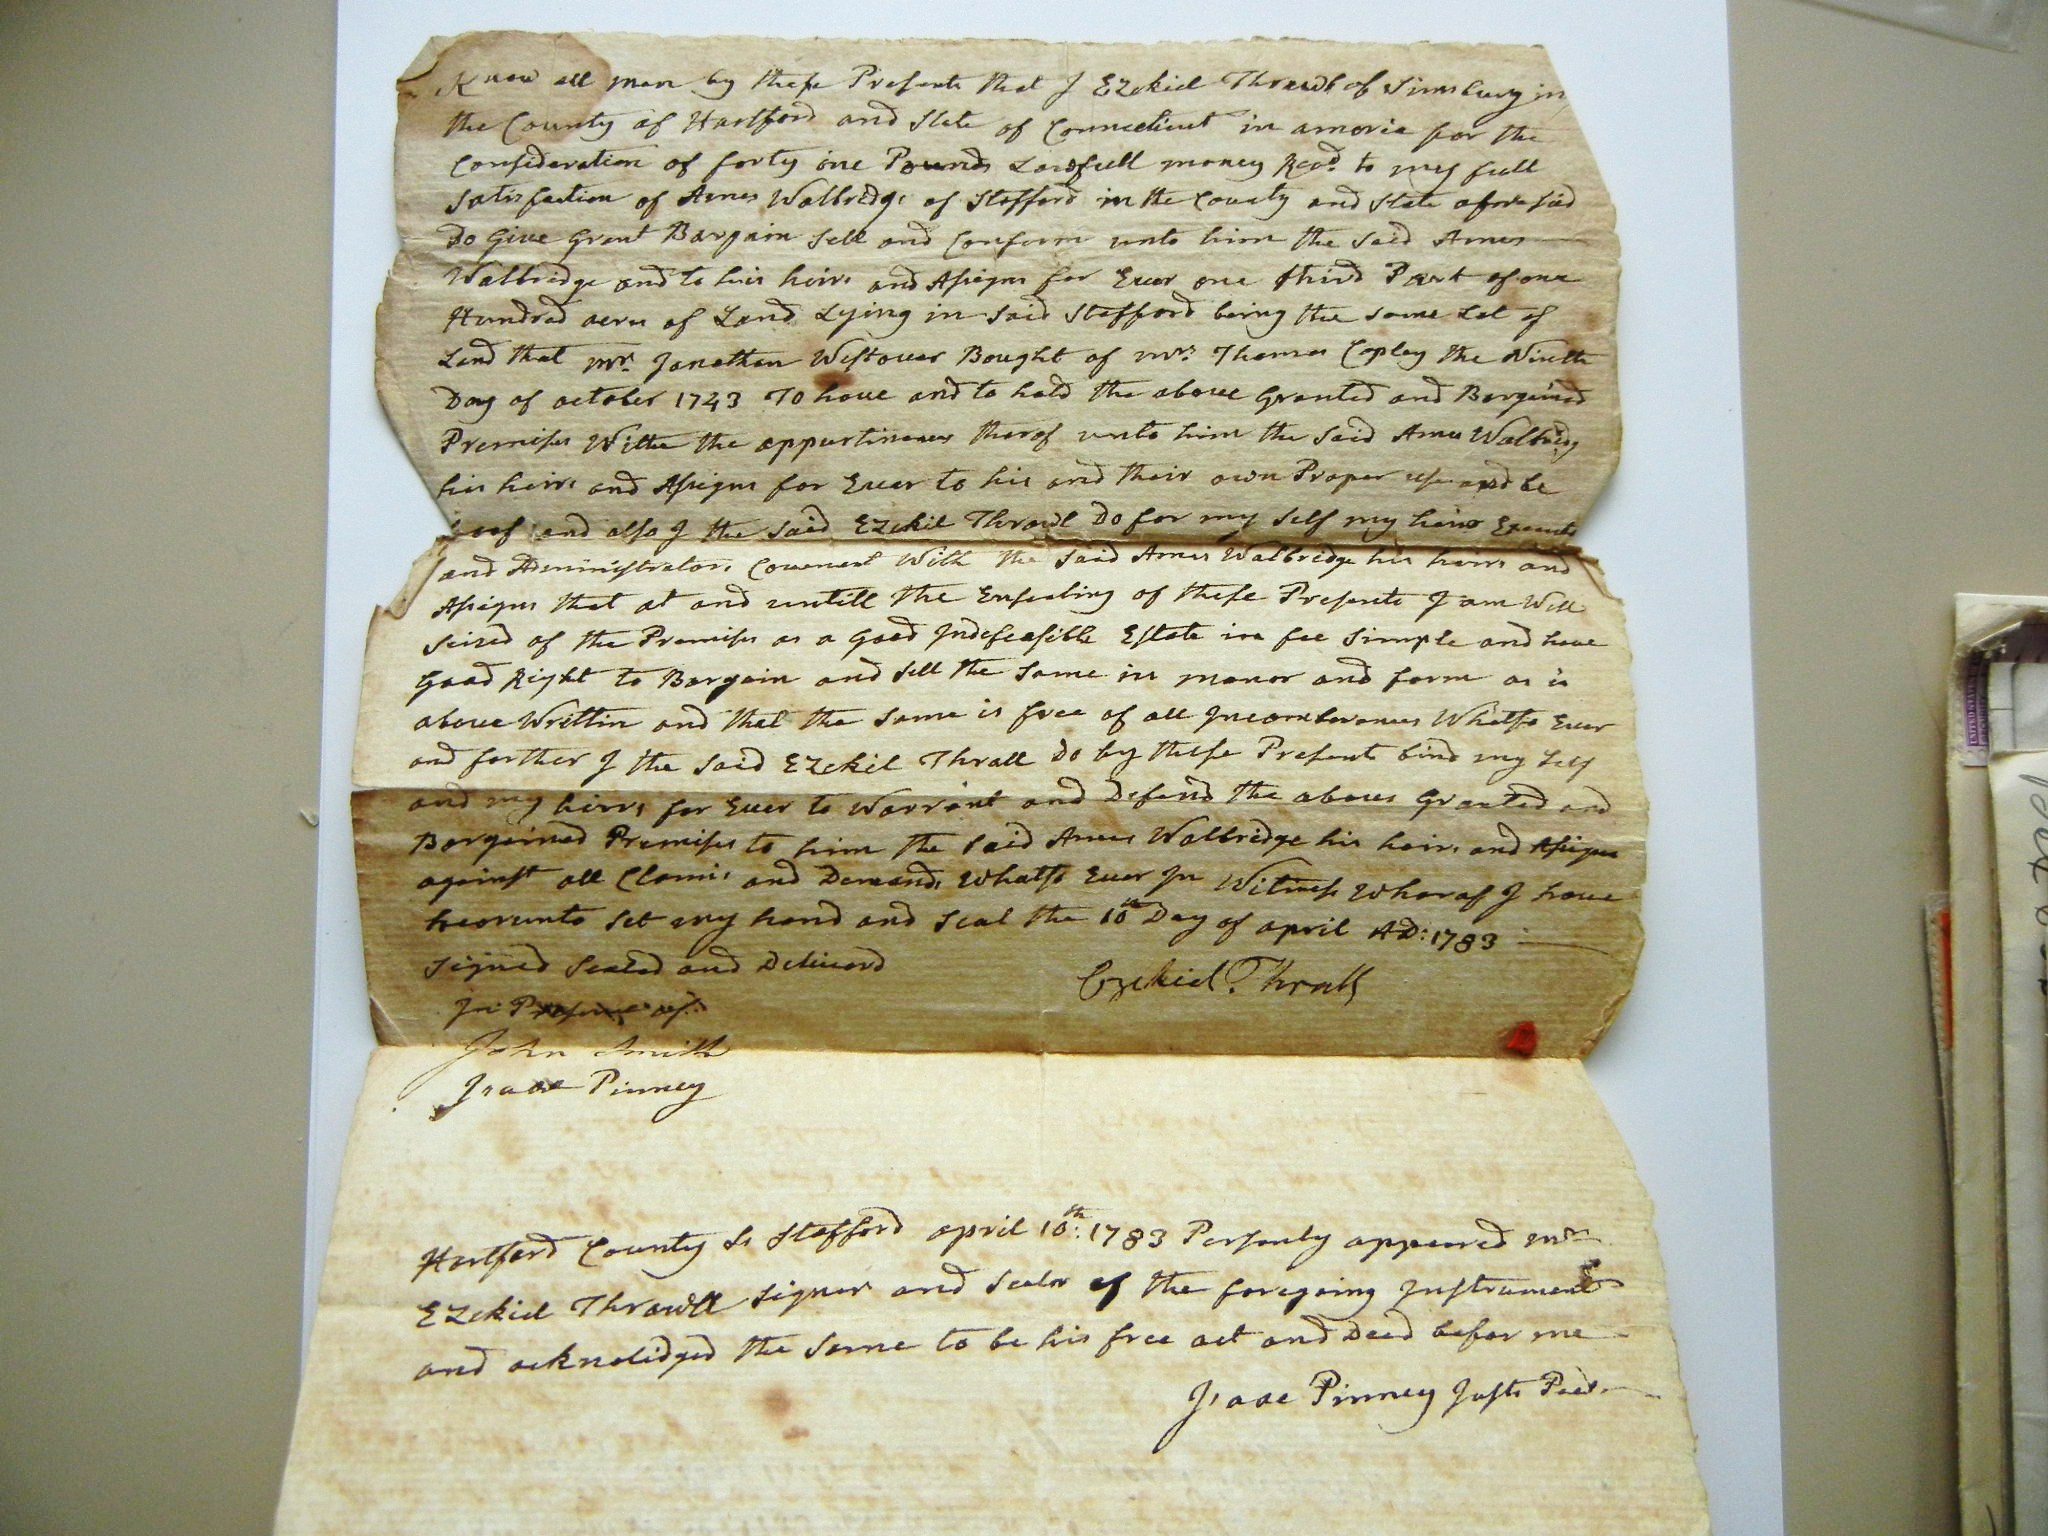 Know all men by these Presents that I Ezekiel Thrawl of Simsbury in
the County of Hartford and State of Connecticut in americ for the
Consideration of forty one Pounds Lawfull money Recd. to my full
Satisfaction of Ames Walbridge of Stafford in the County and State aforesaid
Do Give Grant Bargain Sell and Confirm unto him the said Ames
Walbridge and to his heirs and Assigns for Ever one third Part of one
Hundred acres of Land Lying in said Stafford being the same Lot of
Land that Mr. Jonathan Westover Bought of Mr. Thomas Copley the Ninth
Day of october 1743 To have and to hold the above Granted and Bargained
Premises Withe the appurtinances therof unto him the said Ames Walbridg
his heirs and Assigns for Ever to his and their own Proper use and be
hoof and also I the said Ezekil Thrawl Do for my self my heirs Executs
and Administrators Covenent With the said Ames Walbridge his heirs and
Assigns that at and untill the Ensealing of these Presents I am Well
Seized of the Premises as a Good Indefeasible Estate in fee Simple and have
Good Right to Bargain and sell the same in manor and form as is
above Writtin and that the same is free of all Incomberances Whatso Ever
and forther I the said Ezekil Thrall Do by these Presents bind my self
and my heirs for Ever to Warrant and Defend the above Granted and
Bargained Premises to him the said Ames Walbridge his heirs and Assigns
against all Claims and Demands Whatso Ever In Witness Wharof I have
heorunto set my hand and seal the 10th Day of april AD: 1783
Signed Sealed and Deliverd
Ezekiel Thrall
In Presence of
John Smith
Isaac Pinney
Hartford County Ss Stafford april 10th: 1783 Personly appeared Mr
Ezekiel Thrawll Signer and Sealer of the foregoing Instrument
and acknolidged the same to be his free act and Deed befor me
Isaac Pinney Justs Peac